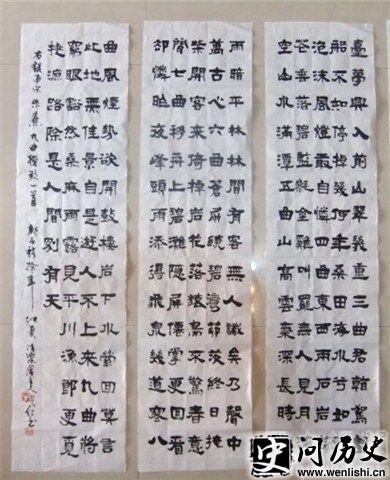 臺夢興入前山翠幾重三曲君觀駕
船不知停棹幾何年桑田海水兮如
泡沫風燈敢自憐四曲東西兩石岩
花垂落碧毿金雞叫罷無人見月
空山水滿潭五曲山高雲氣深長時
雨暗平林林間有客無人識矣乃聲中
萬古心六曲蒼屏繞碧灣茆茨終日掩
柴關客來倚棹岩花落猿鳥不驚春意
閒七曲移舟上碧灘隱屏仙掌更回看
却憐昨夜峰頭雨添得飛泉幾道寒八
曲風煙勢欲開鼓樓岩下水縈回莫言
此地無佳景自是遊人不上來九曲將
窮眼豁然桑麻雨露見平川漁郎更覓
桃源路除是人間別有天
右錄南宋朱熹九曲櫂歌一首
史问历史
www.wenlishi.cn